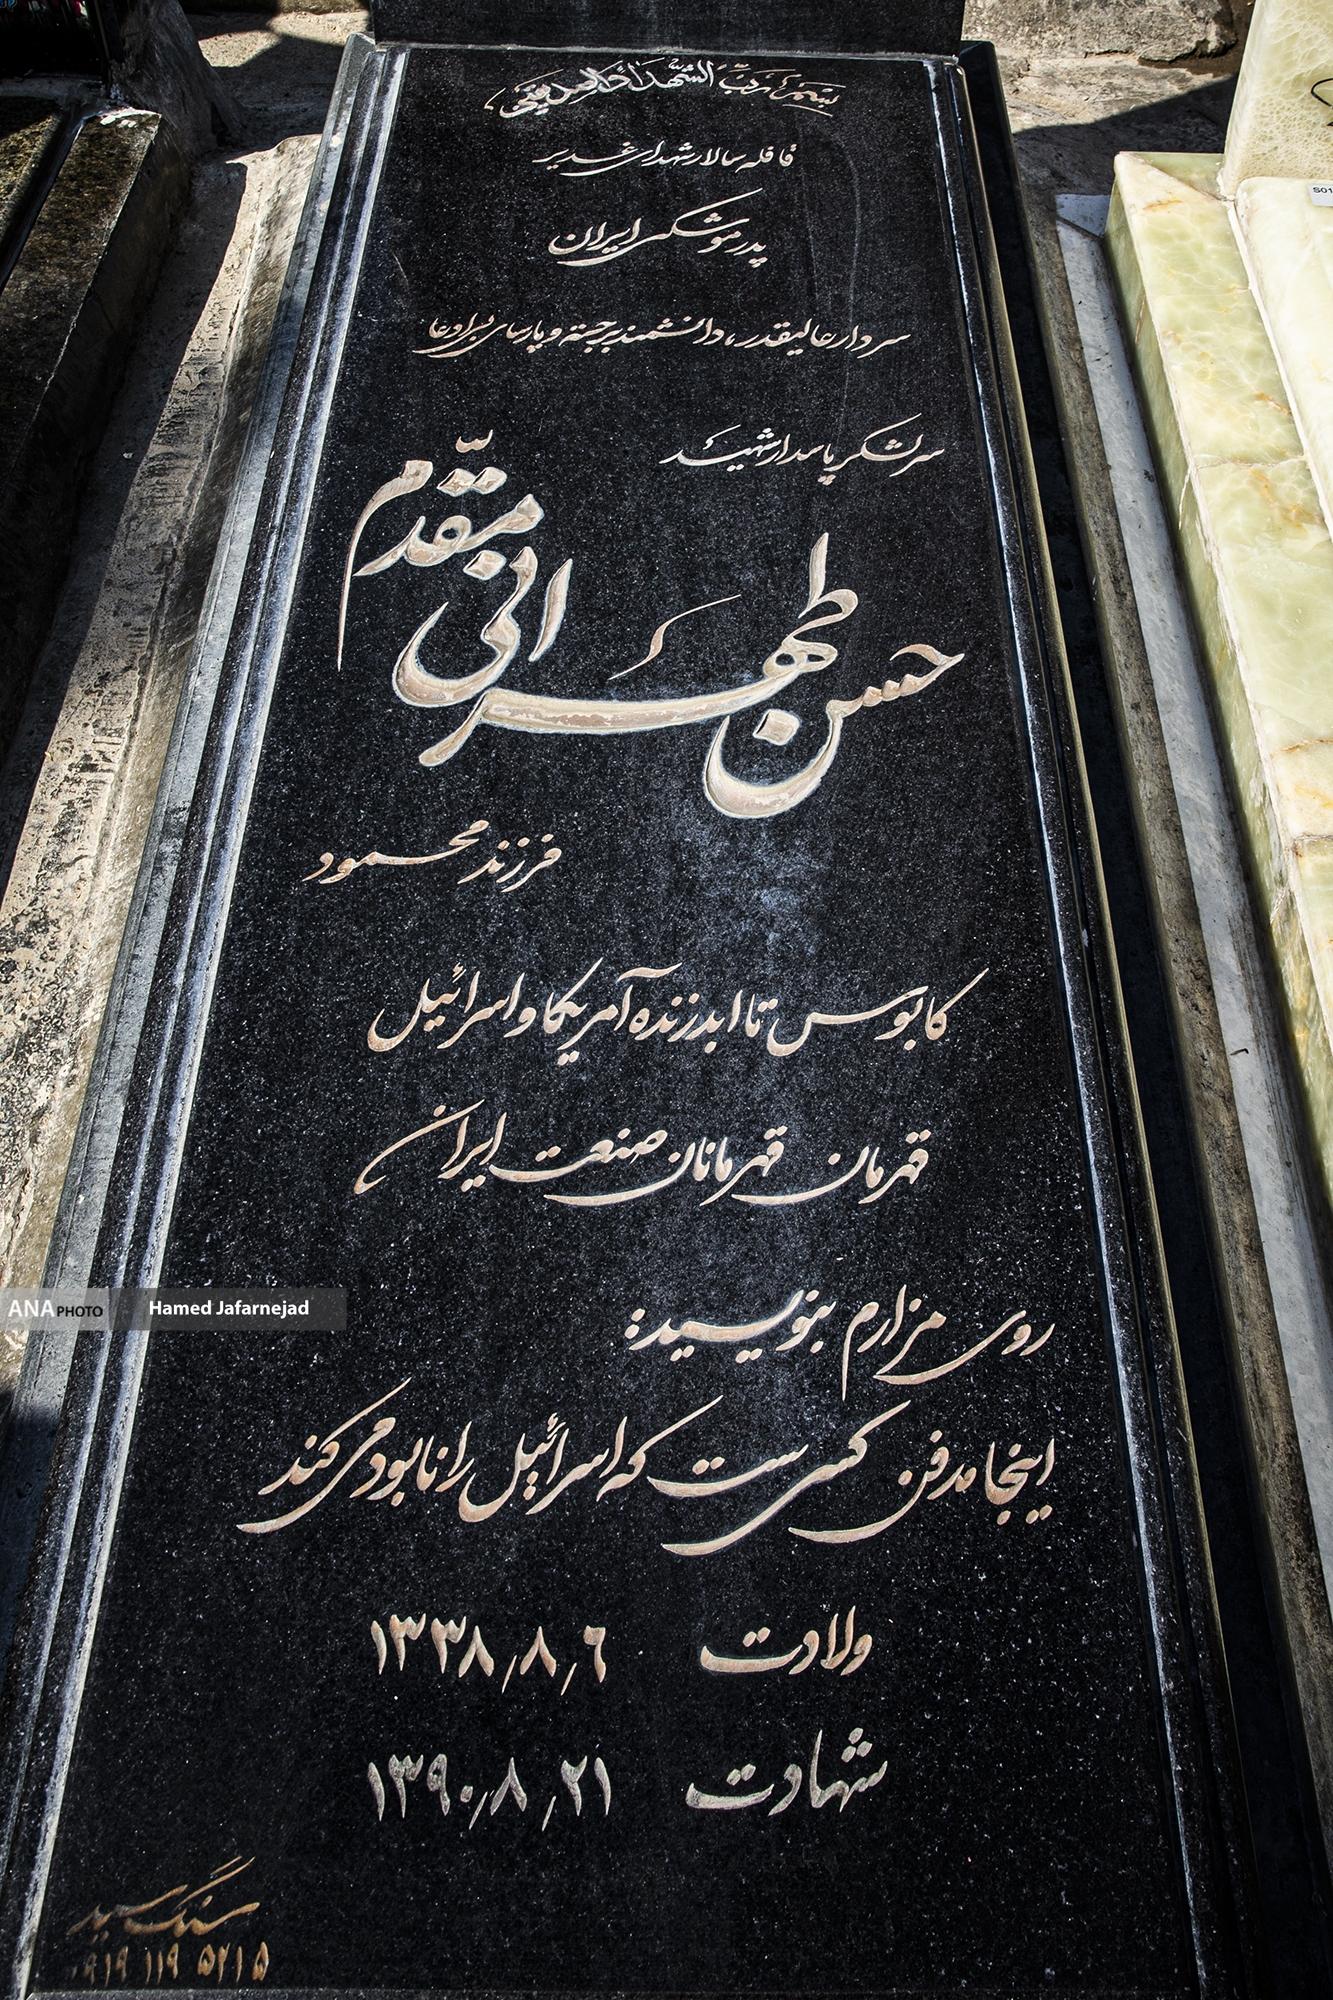 بسم رب الشهداء و الصدیقین
قافله سالار شهدای غدیر
پدر موشکی ایران
سردار عالیقدر، دانشمند برجسته و پارسای بی ادعا
سرلشکر پاسدار شهید
حسن طهرانی مقدّم
فرزند محمود
کابوس تا ابد زنده آمریکا و اسرائیل
قهرمان قهرمانان صنعت ایران
روی مزارم بنویسید:
اینجا مدفن کسی ست که اسرائیل را نابود می کند
ولادت ۱۳۳۸٫۸٫۶
شهادت ۱۳۹۰٫۸٫۲۱
سنگ سید
۰۹۱۹ ۱۱۹ ۵۲۱۵
ANA PHOTO Hamed Jafarnejad
S01